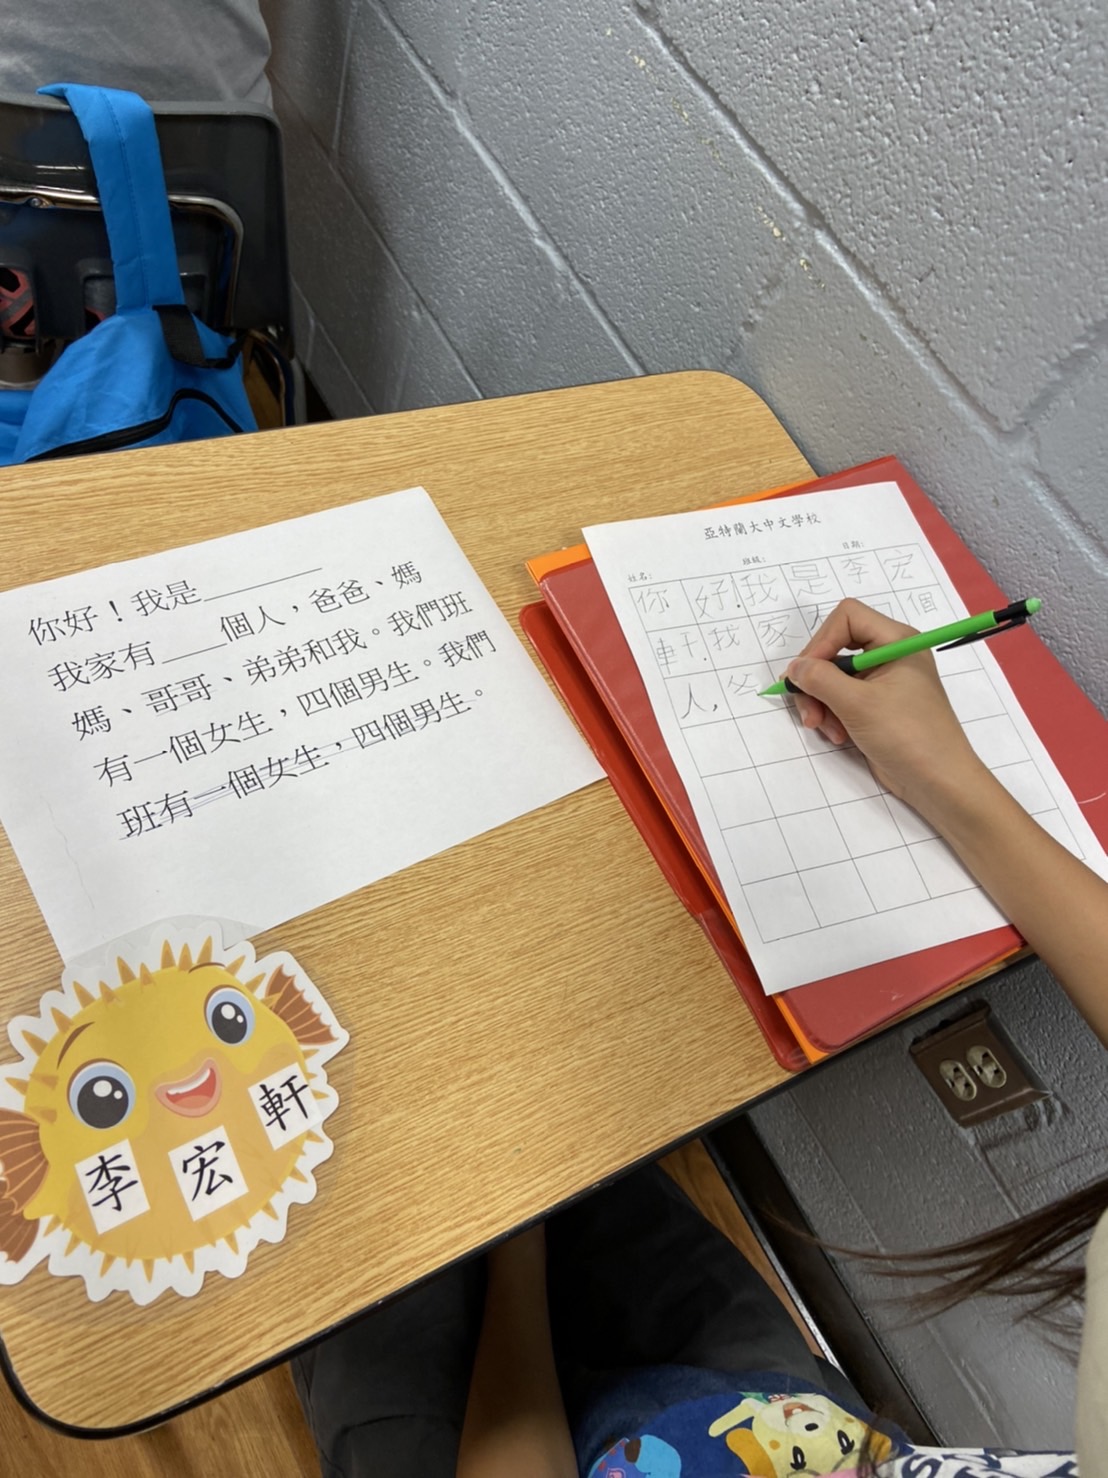 你好！我是______
我家有___個人，爸爸、媽
媽、哥哥、弟弟和我。我們班
有一個女生，四個男生。我們
班有一個女生，四個男生。
李宏軒
亞特蘭大中文學校
姓名： 班級： 日期：
你好!我是李宏
軒.我家 個
人,